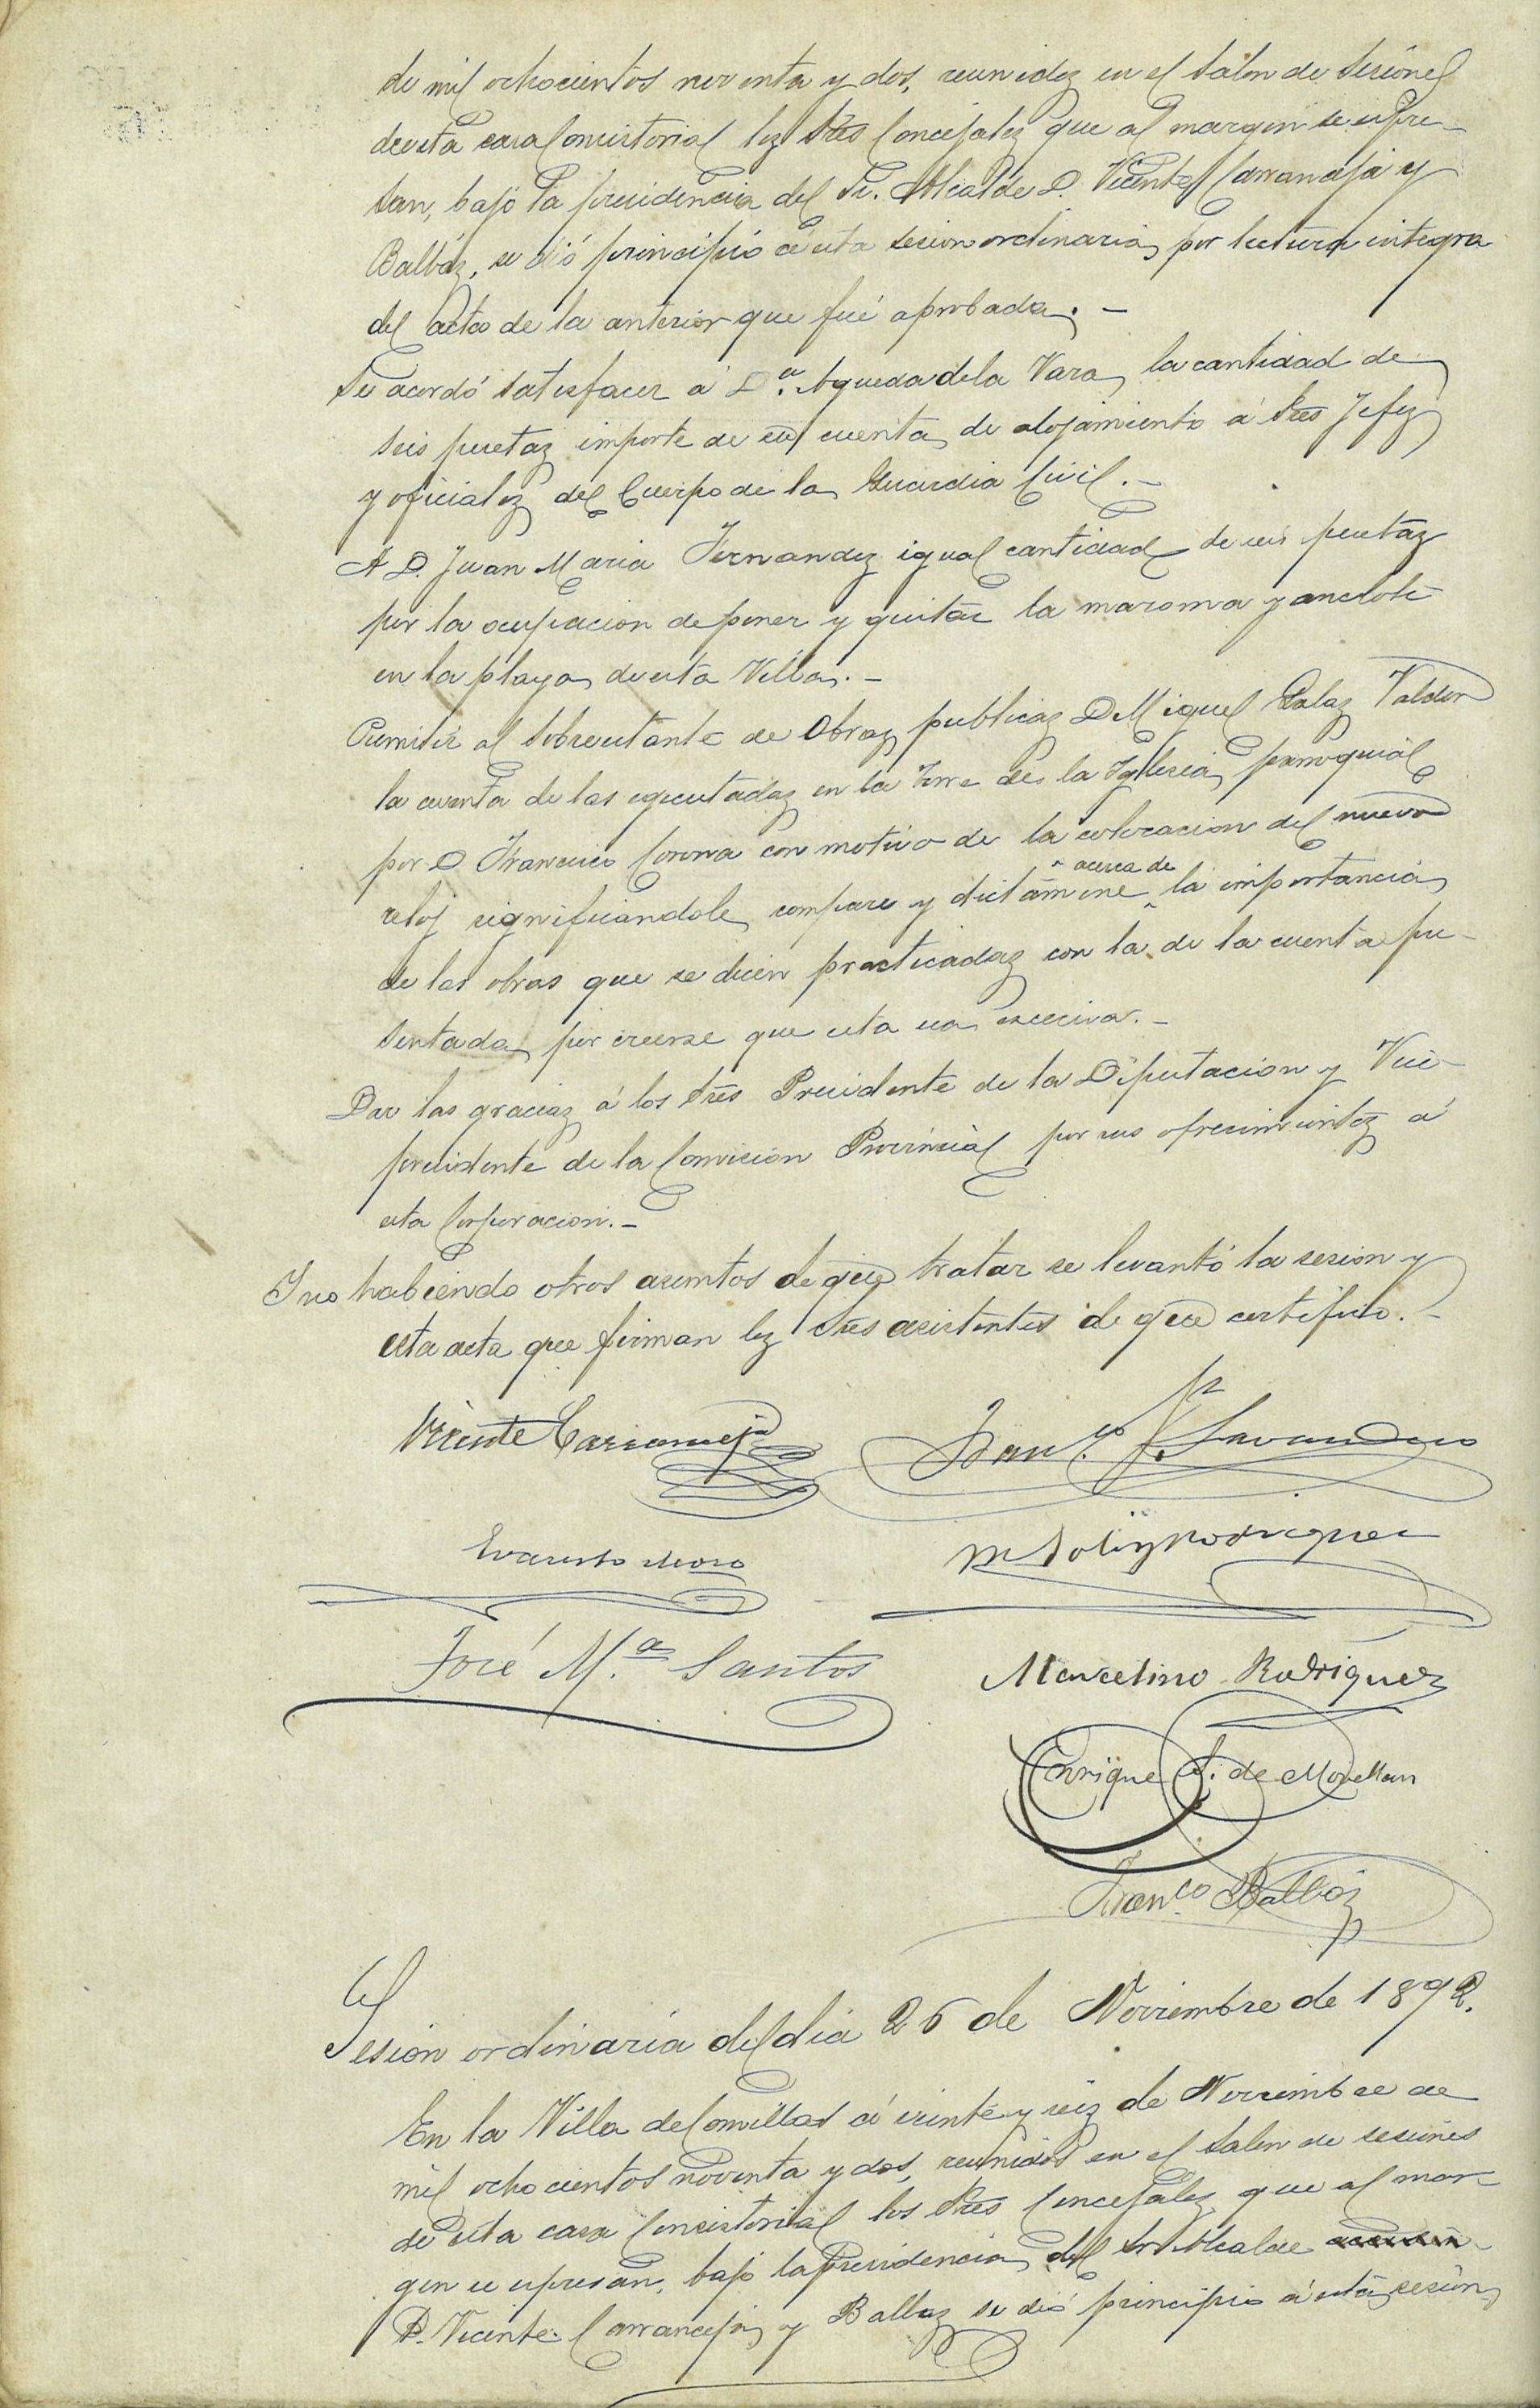 de mil ochocientos noventa y dos, reunidos en el Salon de Sesiones
de esta casa Consistorial los Sres Concejales que al margen se espre-
san, bajo la presidencia del Sr. Alcalde D. Vicente Carranceja y
Balbás, se dió principio á esta sesion ordinaria, por lectura integra
del acta de la anterior que fué aprobada. -
Se acordó satisfacer á D.ª Agueda de la Vara, la cantidad de
seis pesetas importe de su cuenta de alojamiento á Sres Jefes
y oficiales del Cuerpo de la Guardia Civil. -
A D. Juan Maria Fernandez igual cantidad de seis pesetas
por la ocupacion de poner y quitar la maroma y anclote
en la playa de esta Villa. -
Remitir al Sobrestante de Obras publicas D Miguel Salas
la cuenta de las egecutadas en la Torre de la Yglesia parroquial
por D Francisco Corona con motivo de la colocacion del nuevo
reloj significandole compare y dictamine acerca de la importancia
de las obras que se dicen practicadas con la de la cuenta pre-
sentada, por creerse que esta sea excesiva. -
Dar las gracias á los Sres Presidente de la Diputacion y Vice-
presidente de la Comision Provincial por sus ofrecimientos á
esta Corporacion. -
Y no habiendo otros asuntos de que tratar se levantó la sesion y
esta acta que firman los Sres asistentes de que certifico. -
Vicente Carranceja
Fran.co
Evaristo
M Solis y Rodriguez
José M.ª Santos
Marcelino Rodriguez
Enrique de Movellan
Fran.co Balbás
Sesion ordinaria del dia 26 de Noviembre de 1892.
En la Villa de Comillas á veinte y seis de Noviembre de
mil ochocientos noventa y dos, reunidos en el Salon de sesiones
de esta casa Consistorial los Sres Concejales que al mar-
gen se espresan, bajo la presidencia del Sr Alcalde
D. Vicente Carranceja y Balbas se dió principio á esta sesion,